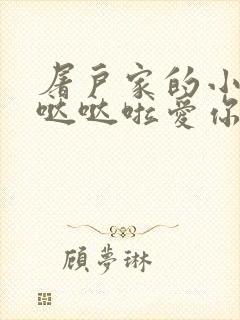 屠户家的小
哒哒啦爱你
顾梦琳